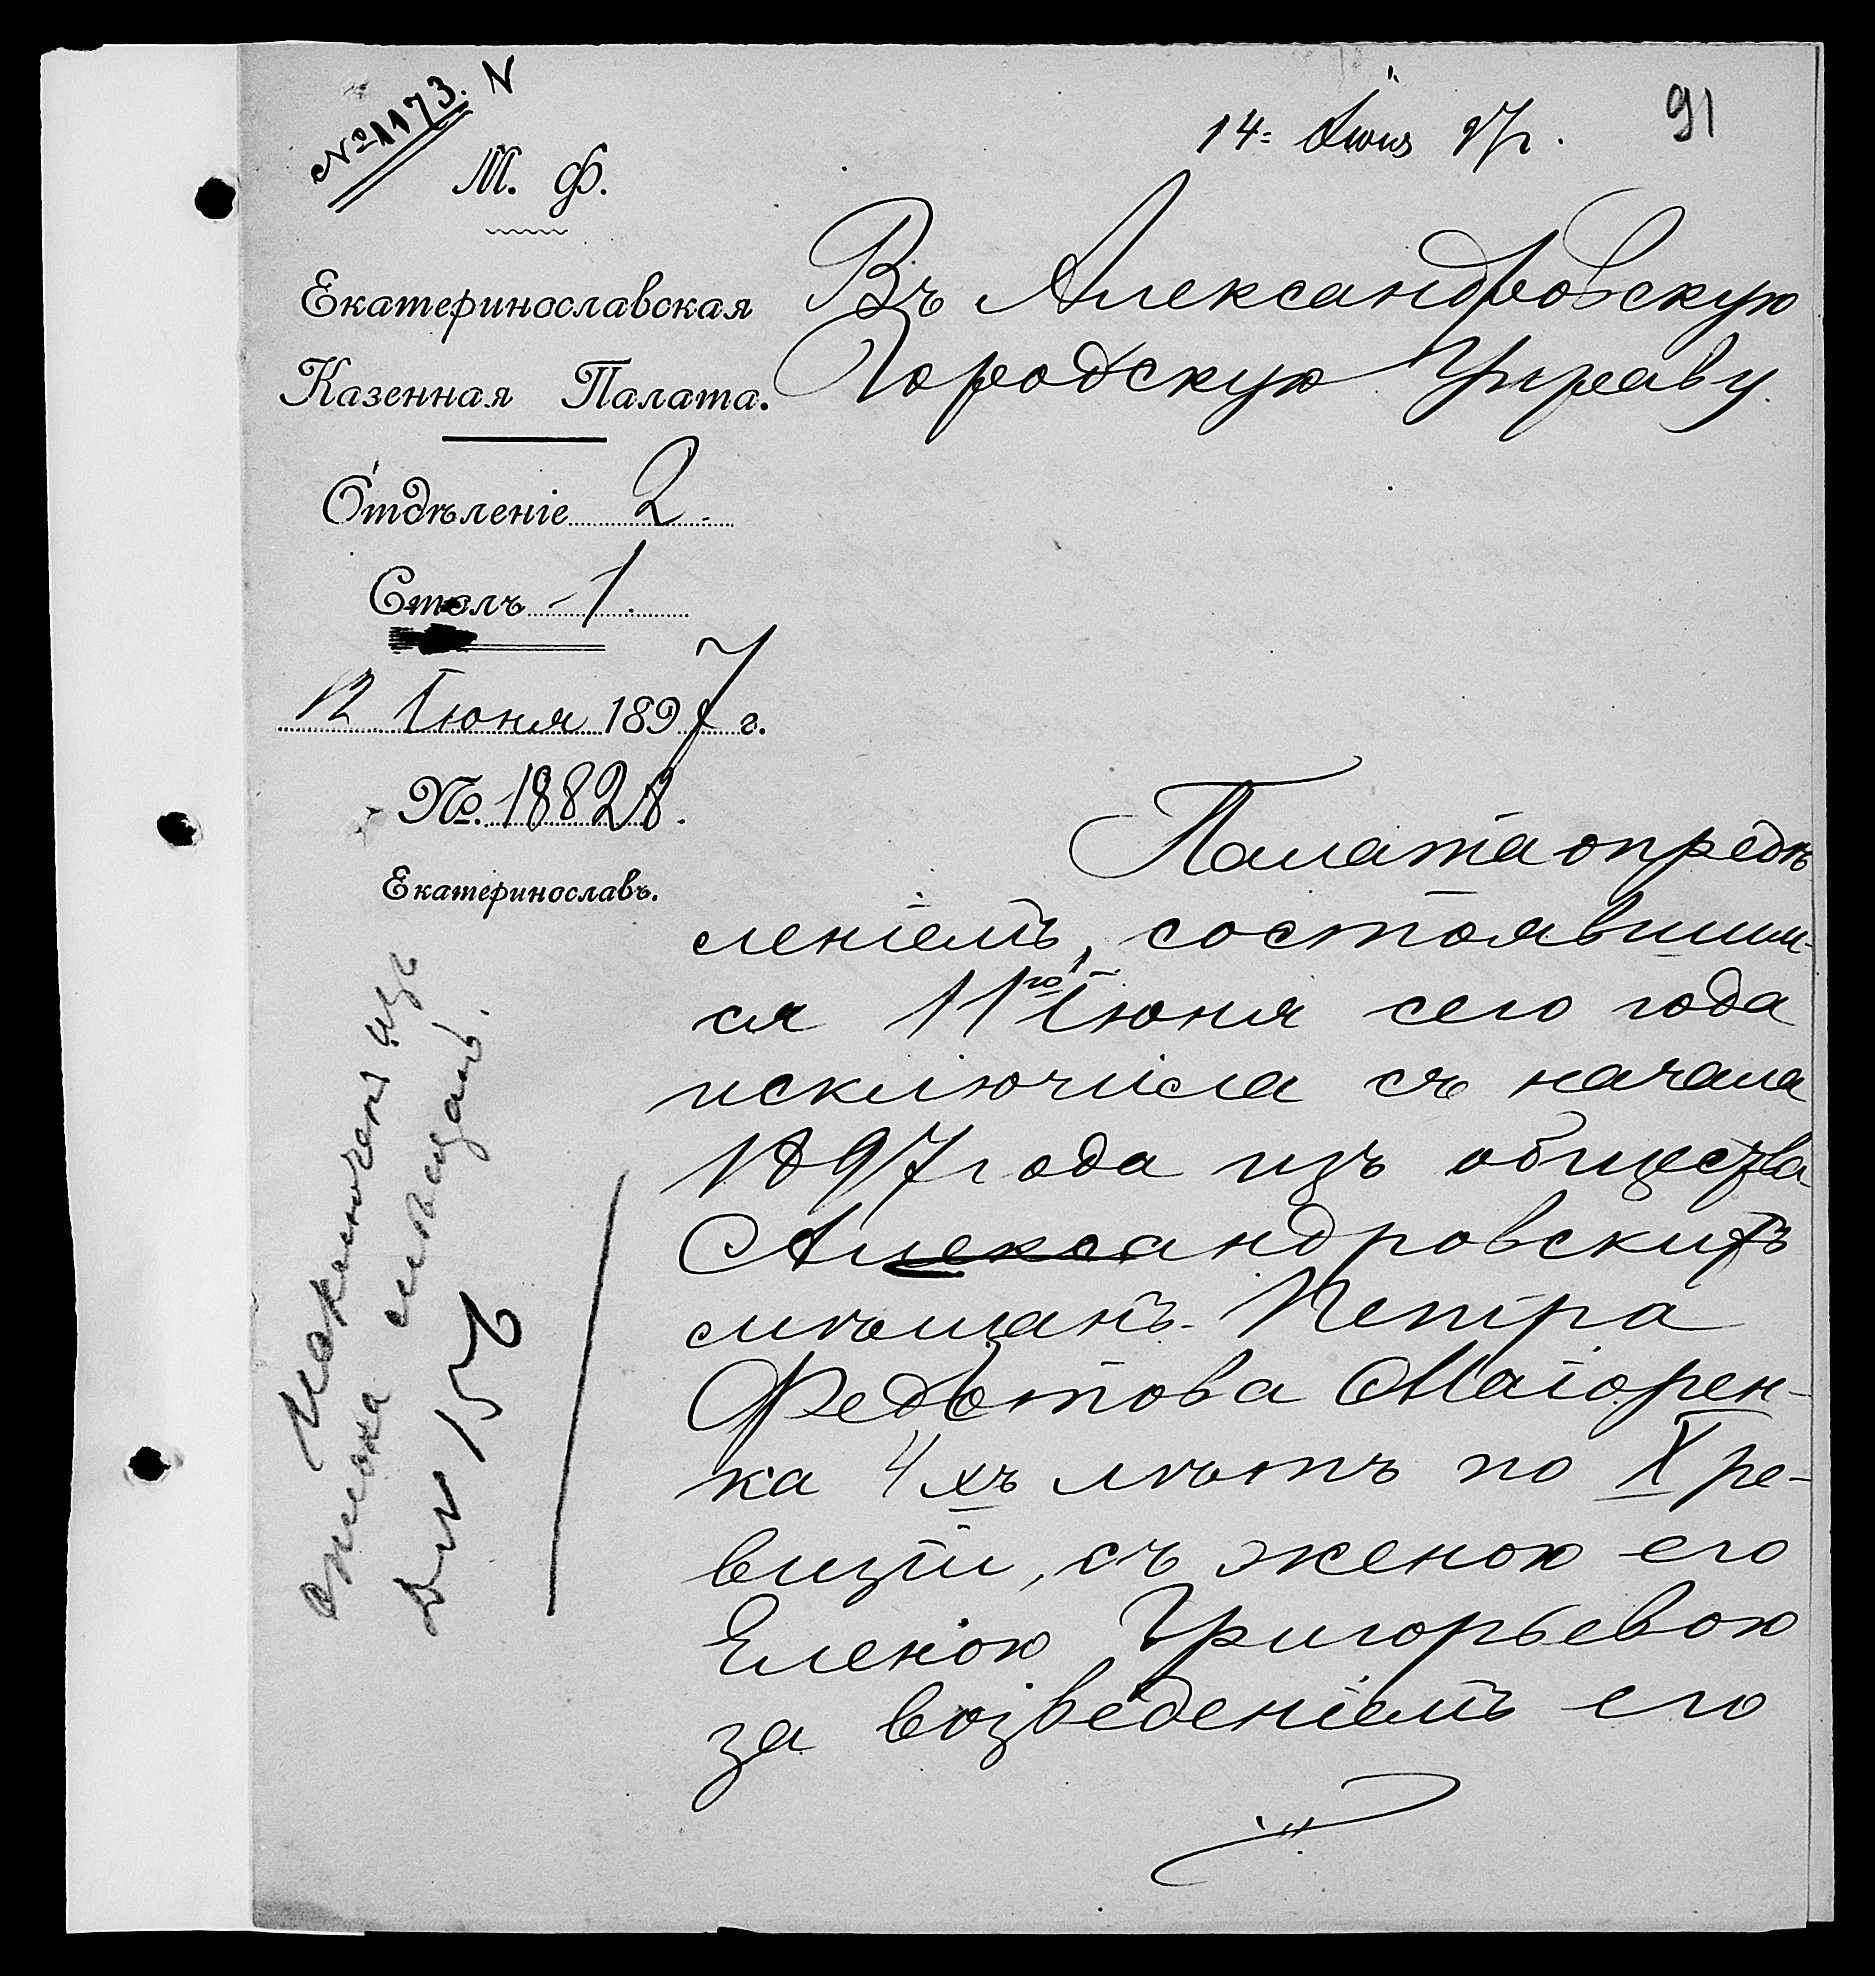 № 1173. N
14 Іюня 97 г.
91
М. Ф.
Екатеринославская
Казенная Палата.
Отдѣленіе 2.
Столъ 1.
12 Іюня 1897 г.
№. 18828.
Екатеринославъ.
Въ Александровскую
Городскую Управу
Палата опредѣ
леніемъ, состоявшим-
ся 11го Іюня сего года
исключила съ начала
1897 года изъ общества
Александровскихъ
мѣщанъ Петра
Федотова Маіорен-
ка 4хъ лѣтъ по X ре-
визіи, съ женою его
Еленою Григорьевою
за возведеніемъ его
Исключенъ изъ
списка мѣщанъ.